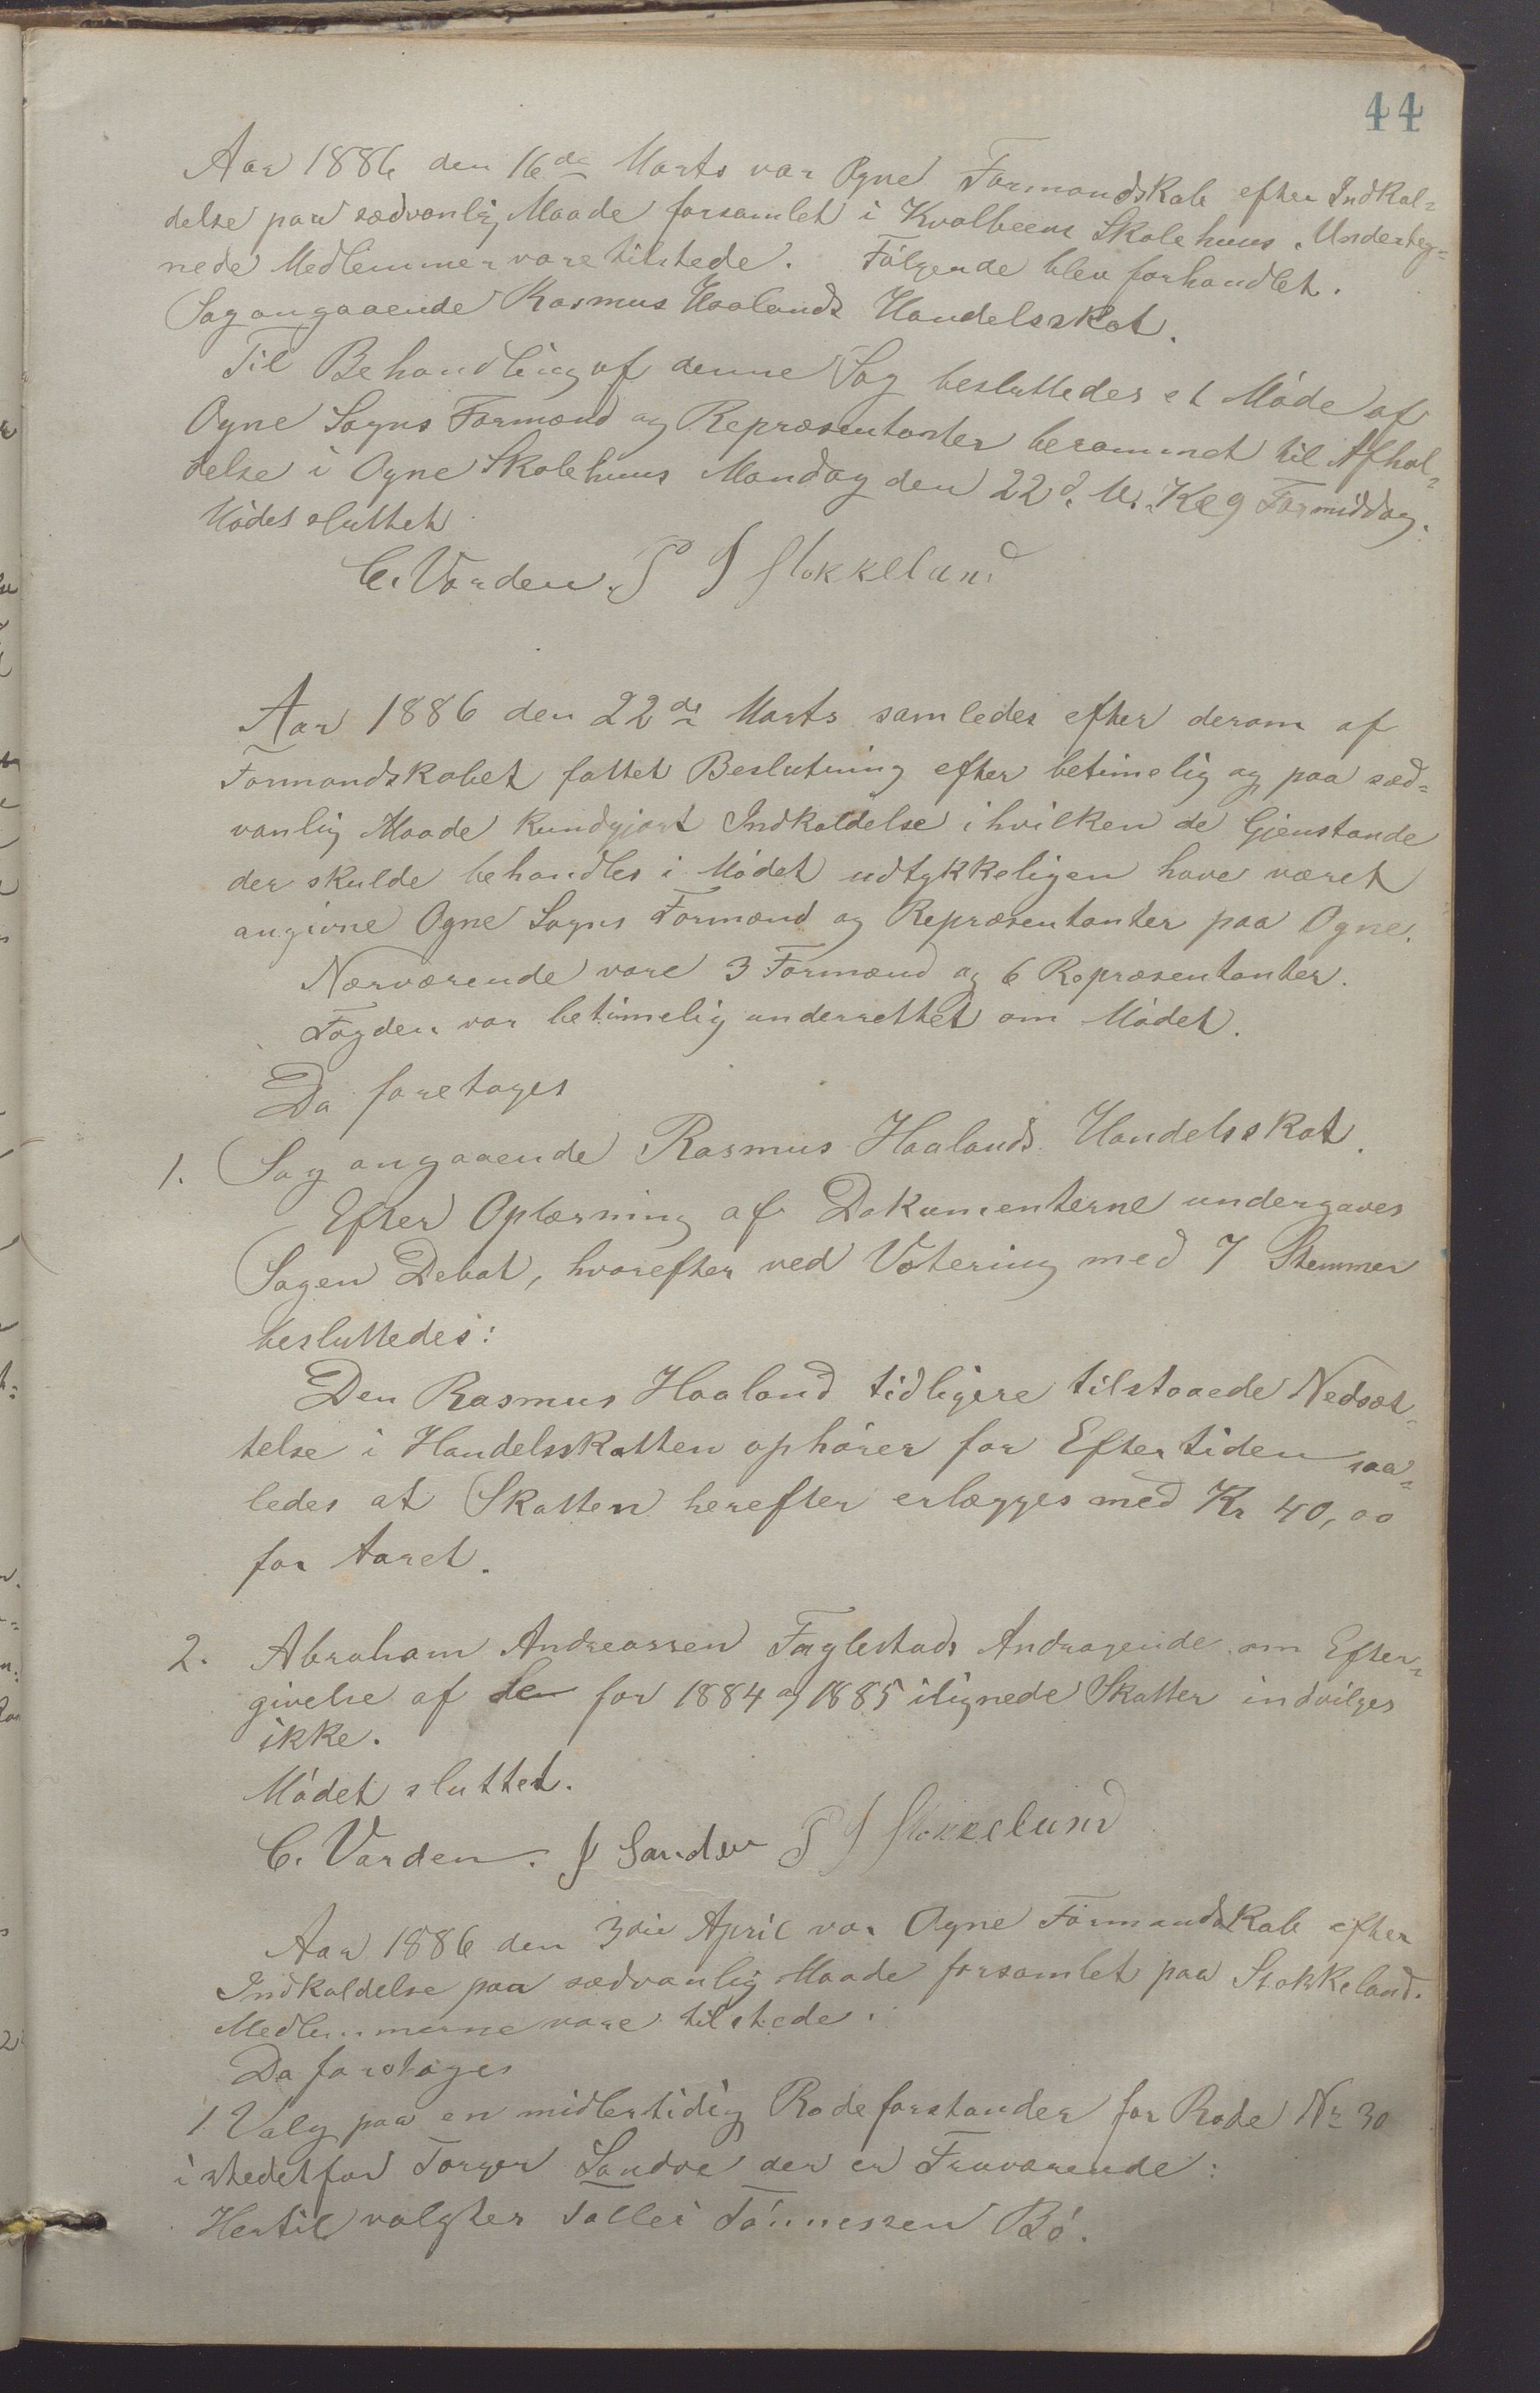 44
Aar 1886 den 16de Marts var Ogne Formandskab efter Indkal=
delse paa sædvanlig Maade forsamlet i Kvalbeens Skolehuus. Underteg=
nede Medlemmer vare tilstede. Følgende blev forhandlet.
Sag angaaende Rasmus Haalands Handelsskat.
Til Behandling af denne Sag besluttedes et Møde af
Ogne Sogns Formænd og Repræsentanter berammet til Afhol=
delse i Ogne Skolehuus Mandag den 22d. M. Kl 9 Formiddag.
Mødet sluttet
C. Varden. P J Stokkeland
Aar 1886 den 22de Marts samledes efter derom af
Formandskabet fattet Beslutning efter betimelig og paa sæd=
vanlig Maade Kundgjort Indkaldelse i hvilken de Gjenstande
der skulde behandles i Mødet udtykkeligen have været
angivne Ogne Sogns Formænd og Repræsentanter paa Ogne.
Nærværende vare 3 Formænd og 6 Repræsentanter.
Fogden var betimelig underrettet om Mødet.
Da foretages
1. Sag angaaende Rasmus Haalands Handelsskat.
Efter Oplæsning af Dokumenterne undergaves
Sagen Debat, hvorefter ved Votering med 7 Stemmer
besluttedes:
Den Rasmus Haaland tidligere tilstaaede Nedsæt=
telse i Handelsskatten ophører for Eftertiden saa=
ledes at Skatten herefter erlægges med Kr 40,00
for Aaret.
2. Abraham Andreassen Fuglestads Andragende om Efter=
givelse af de for 1884 og 1885 ilignede Skatter indvilges
ikke.
Mødet sluttet.
C. Varden. J Sandve P J Stokkeland
Aar 1886 den 3die April var Ogne Formandskab efter
Indkaldelse paa sædvanlig Maade forsamlet paa Stokkeland.
Medlemmerne vare tilstede.
Da foretages
1. Valg paa en midlertidig Rodeforstander for Rode Nr 30
i stedetfor Torger Sandve der er Fraværende:
Hertil valgtes Tollei Tønnessen Bø.